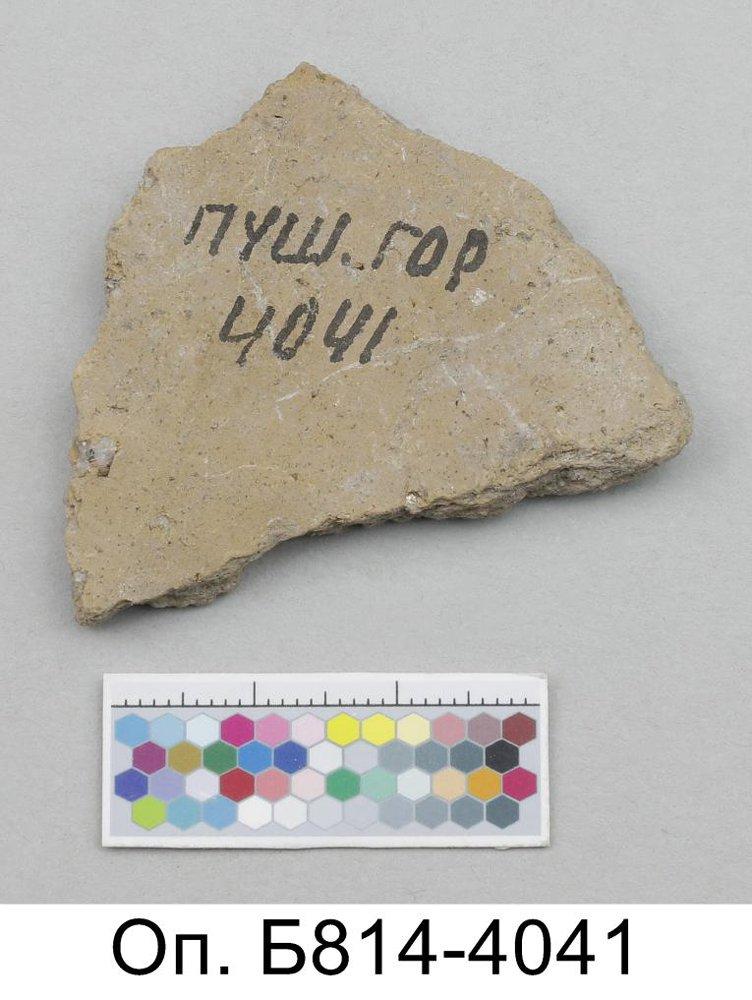 ПУШ.ГОР
4041
Оп. Б814-4041